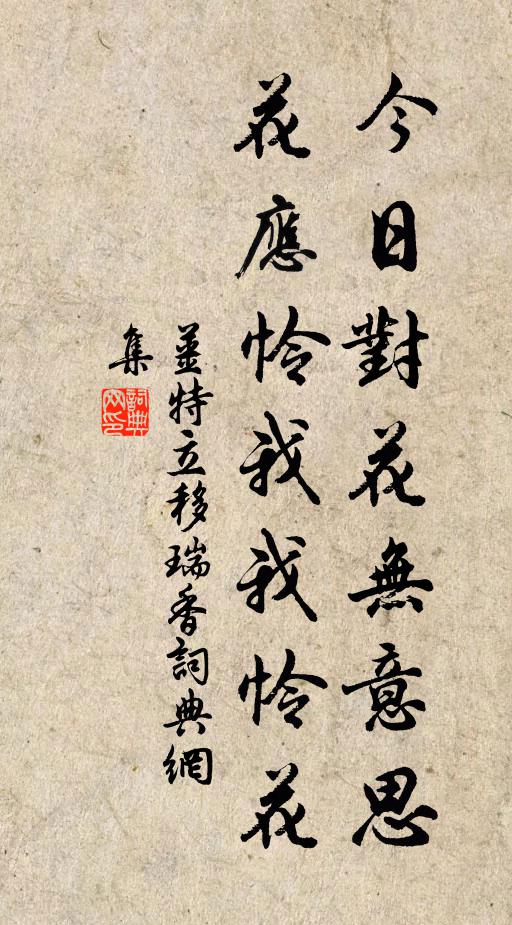 今日對花無意思
花應怜我我怜花
姜特立移瑞香詞典網
集
詞典
网印